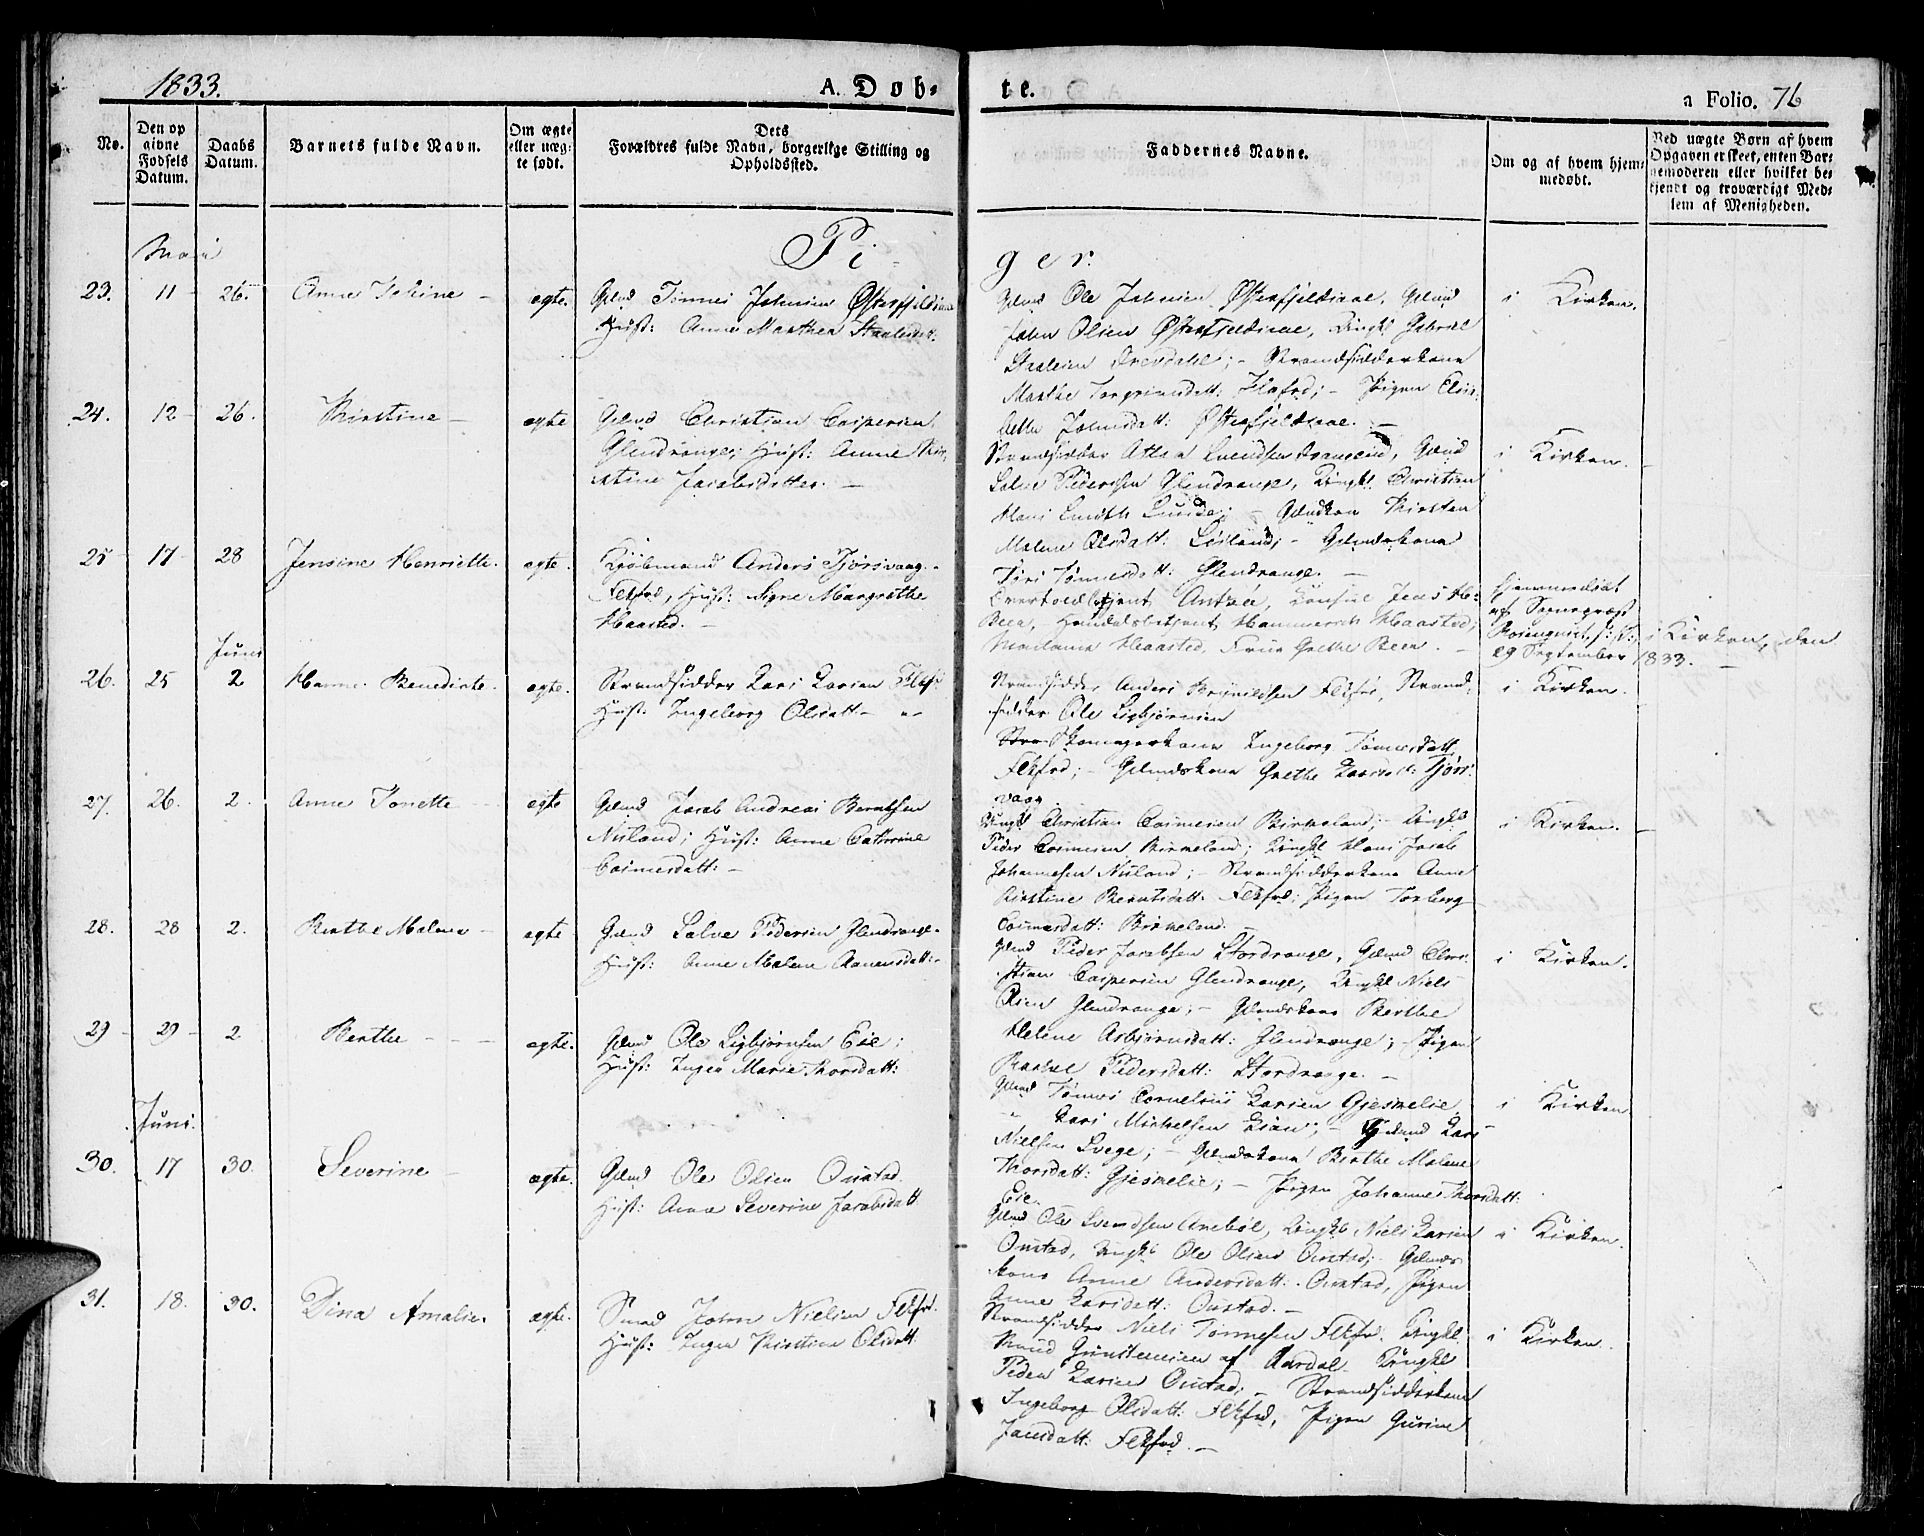 1833.
A. Døb-
te.
a Folio. 76
No.
Den op
givne
Fødsels
Datum.
Daabs
Datum.
Barnets fulde Navn.
Om ægte
eller uæg-
te født.
Dets
Forældres fulde Navn, borgerlige Stilling og
Opholdssted.
Faddernes Navne.
Om og af hvem hjem-
medøbt.
Ved uægte Børn af hvem
Opgaven er skeet, enten Bar-
nemoderen eller hvilket be-
kjendt og troværdigt Med-
lem af Menigheden.
Pi-
ger.
Maii
23. 11 26. Anne Tobine ægte. Glmd Tønnes Johnsen Østerfjeldsaae
Hust: Anne Marthea
Glmd Ole Johnsen Østerfjeldsaae, Glmd
John Olsen Østerfjeldsaae, Ungkl Gabriel
Strandsidderkone
Marthe Torgrimsdatt: Flefrd; - Pigen Elis-
bethe Johnsdatt: Østerfjeldsaae. -
i Kirken.
24. 12 26. Kirstine - ægte Glmd Christian Caspersen
Glendrange; Hust: Anne Kir-
stine Jacobsdatter. -
Strandsidder Atlea Svendsen Glmd
Salve Pedersen Glendrange, Ungkl Christian
Hans Smith Lunde; - Glmdkon Kirsten
Malene Olsdatt: - Glmdskone
Siri Tønnesdatt: Glendrange. -
i Kirken.
25 17 28 Jensine Henriette. ægte. Kjøbmand Anders Tjørsvaag
Flefrd, Hust: Signe Margrethe
Haasted. -
Overtoldbetjent Consul Jens H:
Beer, Handelsbetjent Hammerich Haasted;
Madame Haasted, Frue Grethe Beer. -
hjemmedøbt
af Sognepræst
Rosenqvist, i Kirken, den
29 September 1833. -
Juni
26. 25 2 Hanne Benedicte. ægte. Strandsidder Lars Larsen Flef:
Hust: Ingeborg Olsdatt -
Strandsidder Anders Brynildsen Flefrd, Strand-
sidder Ole Sigbjørnsen
Skomagerkone Ingeborg Tønnesdatt
Flefrd; - Glmdskone Grethe Larsdt: Tjørs-
vaag
i Kirken.
27. 26. 2. Anne Tonette ægte Glmd Jacob Andreas Berntsen
Nuland; Hust: Anne Cathrine
Casmersdatt: -
Ungkl Christian Casmersen Birkeland; - Ungkl
Peder Casmersen Birkeland; Ungkl Hans Jacob
Johannesen Nuland; - Strandsidderkone Anne
Kirstine Berntsdatt: Flefrd; Pigen Torberg
Casmersdatt: Birkeland. -
i Kirken.
28. 28 2. Berthe Malene - ægte Glmd Salve Pedersen Glendrange.
Hust: Anne Malene Aanensdatt:
Glmd Peder Jacobsen Stordrange, Glmd Chri-
stian Caspersen Glendrange, Ungkl Niels
Olsen Glendrange; - Glmdskone Berthe
Helene Asbjørnsdatt: Glendrange; - Pigen
Rachel Pedersdatt: Stordrange. -
i Kirken.
29 29 2 Berthe - - - ægte. Glmd Ole Sigbjørnsen Eie;
Hust: Inger Marie Thorsdatt:
Glmd Tønnes Cornelius Larsen Gjesmelie,
" Lars Michelsen - Glmd Lars
Nielsen Svege; - Glmdskone Birthe Malene
Thorsdatt: Gjesmelie; - Pigen Johanne Thorsdatt:
Eie.
i Kirken
Juni.
30. 17 30. Severine ægte. Glmd Ole Olsen Oustad.
Hust: Anna Severine Jacobsdatt
Glmd Ole Svendsen Aneböl, Ungkl Niels Larsen
Oustad, Ungkl Ole Olsen Oustad; Glmds-
kone Anne Andersdatt: Oustad, Pigen
Anne Larsdatt: Oustad. -
i Kirken.
31. 18. 30. Dina Amalie. ægte. Smed John Nielsen Flefrd.
Hust: Inger Kirstine Olsdatt
Strandsidder Niels Tønnesen Flefrd. Ungkl
Knud Gunstensen af Aardal. Ungkl
Peder Larsen Oustad; - Strandsidderkone
Ingeborg Olsdatt: Flefrd, Pigen Gurine
Jansdatt: Flefrd. -
i Kirken.